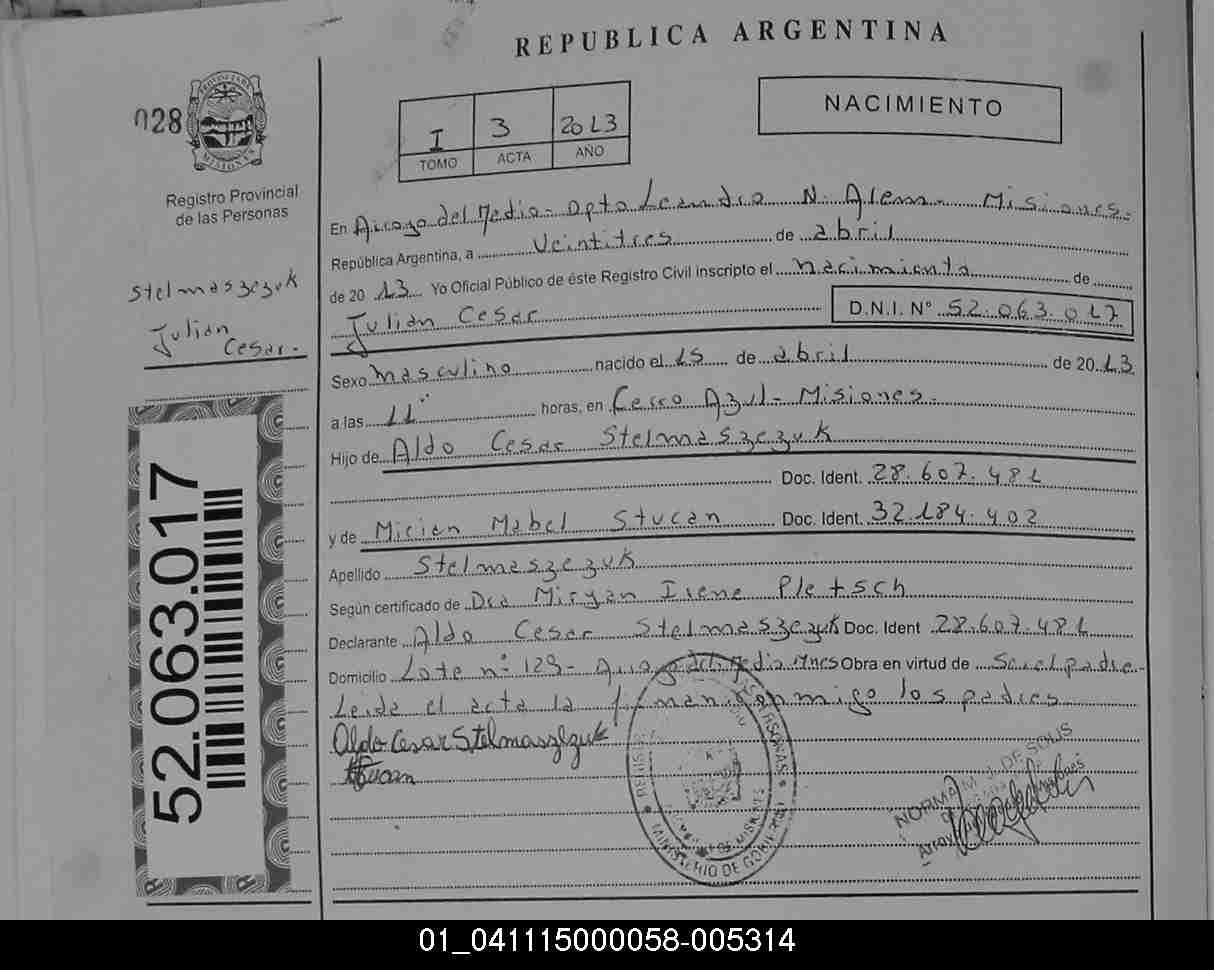 REPUBLICA ARGENTINA
028
PROVINCIA DE MISIONES
Registro Provincial
de las Personas
I 3 2013
TOMO ACTA AÑO
NACIMIENTO
Stelmaszczuk
Julian
Cesar.
52.063.017
En Arroyo del Medio - Dpto Leandro N. Alem - Misiones.
República Argentina, a Veintitres de abril
de 2013 Yo Oficial Público de éste Registro Civil inscripto el nacimiento de
Julian Cesar D.N.I. Nº 52.063.017
Sexo masculino nacido el 15 de abril de 2013
a las 11 horas, en Cerro Azul - Misiones.
Hijo de Aldo Cesar Stelmaszczuk
Doc. Ident. 28.607.481
y de Mirian Mabel Stucan Doc. Ident. 32.184.402
Apellido Stelmaszczuk
Según certificado de Dra Miryan Irene Pletsch
Declarante Aldo Cesar Stelmaszczuk Doc. Ident 28.607.481
Domicilio Lote nº 129 - Arroyo del Medio Mnes Obra en virtud de Ser el padre -
Leida el acta la firman conmigo los padres
Aldo Cesar Stelmaszczuk
Stucan
MINISTERIO DE GOBIERNO
NORMA M. J. DE SOLIS
Arroyo
01_041115000058-005314